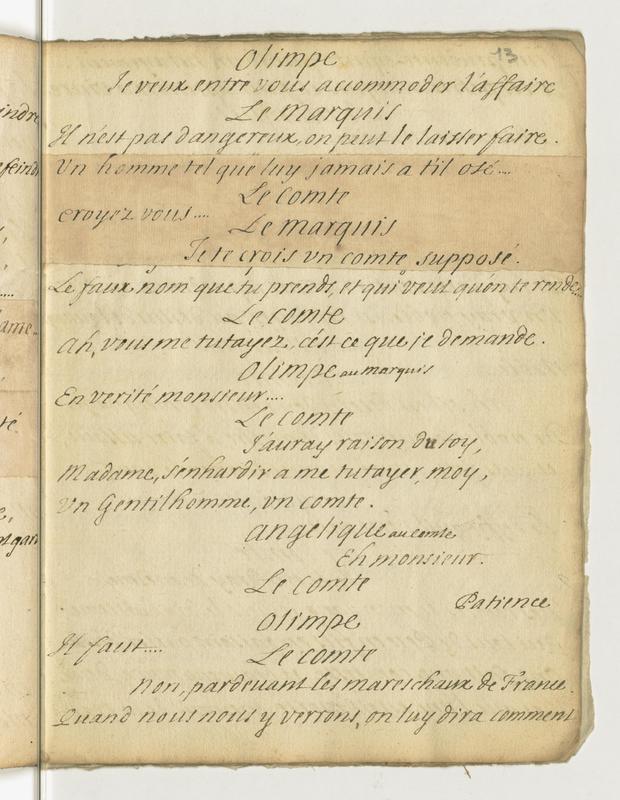 13
Olimpe
Je veux entre vous accommoder l'affaire
Le Marquis
Il n'est pas dangereux, on peut le laisser faire.
Un homme tel que luy jamais a til osé....
Le Comte
croyez vous....
Le Marquis
Je te crois un comte supposé.
Le faux nom que tu prends, et qui veut qu'on te rende...
Le Comte
Ah, vous me tutayez, c'est ce que je demande.
Olimpe au marquis
En verité monsieur....
Le Comte
J'auray raison du toy,
Madame, s'enhardir a me tutayer, moy,
Un Gentilhomme, un comte.
angelique au comte
Eh monsieur.
Le Comte
Patience
Olimpe
Il faut....
Le Comte
Non, pardevant les mareschaux de France.
Quand nous nous y verrons, on luy dira comment